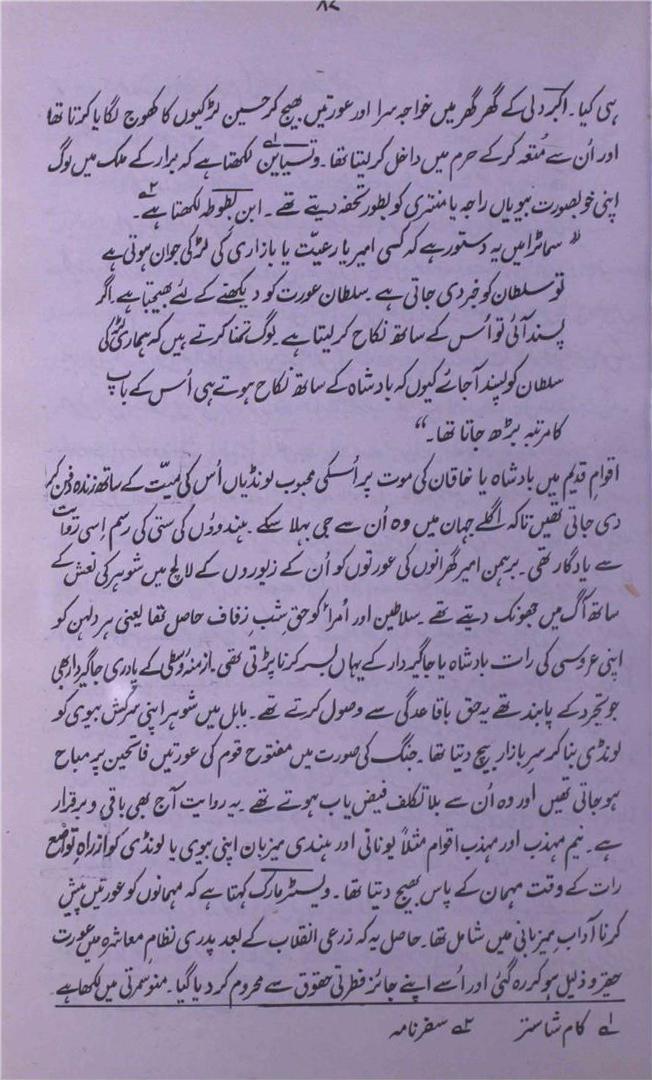 ۸۷
ہی کیا۔ اکبر دلی کے گھر گھر میں خواجہ سرا اور عورتیں بھیج کر حسین لڑکیوں کا کھوج لگایا کرتا تھا
اور اُن سے مُتعہ کر کے حرم میں داخل کر لیتا تھا۔ وتسیاین۱ لکھتا ہے کہ برار کے ملک میں لوگ
اپنی خوبصورت بیویاں راجہ یا منتری کو بطور تحفہ دیتے تھے۔ ابن بطوطہ لکھتا ہے۲۔
"سماٹرا میں یہ دستور ہے کہ کسی امیر یا رعیّت یا بازاری کی لڑکی جوان ہوتی ہے
تو سلطان کو خبر دی جاتی ہے۔ سلطان عورت کو دیکھنے کے لئے بھیجتا ہے۔ اگر
پسند آئی تو اُس کے ساتھ نکاح کر لیتا ہے۔ لوگ تمنا کرتے ہیں کہ ہماری لڑکی
سلطان کو پسند آ جائے کیوں کہ بادشاہ کے ساتھ نکاح ہوتے ہی اُس کے باپ
کا مرتبہ بڑھ جاتا تھا۔"
اقوامِ قدیم میں بادشاہ یا خاقان کی موت پر اُسکی محبوب لونڈیاں اُس کی میّت کے ساتھ زندہ دفن کر
دی جاتی تھیں تاکہ اگلے جہان میں وہ اُن سے جی بہلا سکے۔ ہندوؤں کی ستی کی رسم اِسی روایت
سے یادگار تھی۔ برہمن امیر گھرانوں کی عورتوں کو اُن کے زیوروں کے لالچ میں شوہر کی نعش کے
ساتھ آگ میں جھونک دیتے تھے۔ سلاطین اور اُمراء کو حقِ شبِ زفاف حاصل تھا یعنی ہر دلہن کو
اپنی عروسی کی رات بادشاہ یا جاگیردار کے یہاں بسر کرنا پڑتی تھی۔ ازمنہ وسطٰی کے پادری جاگیردار بھی
جو تجرد کے پابند تھے یہ حق باقاعدگی سے وصول کرتے تھے۔ بابل میں شوہر اپنی سرکش بیوی کو
لونڈی بنا کر سرِ بازار بیچ دیتا تھا۔ جنگ کی صورت میں مفتوح قوم کی عورتیں فاتحین پر مباح
ہو جاتی تھیں اور وہ اُن سے بلاتکلف فیض یاب ہوتے تھے۔ یہ روایت آج بھی باقی و برقرار
ہے۔ نیم مہذب اور مہذب اقوام مثلاً یونانی اور ہندی میزبان اپنی بیوی یا لونڈی کو ازراہِ تواضع
رات کے وقت مہمان کے پاس بھیج دیتا تھا۔ ویسٹرمارک کہتا ہے کہ مہمانوں کو عورتیں پیش
کرنا آدابِ میزبانی میں شامل تھا۔ حاصل یہ کہ زرعی انقلاب کے بعد پدری نظامِ معاشرہ میں عورت
حقیر و ذلیل ہو کر رہ گئی اور اُسے اپنے جائز فطرتی حقوق سے محروم کر دیا گیا۔ منو سمرتی میں لکھا ہے
۱ کام شاستر ۲ سفر نامہ